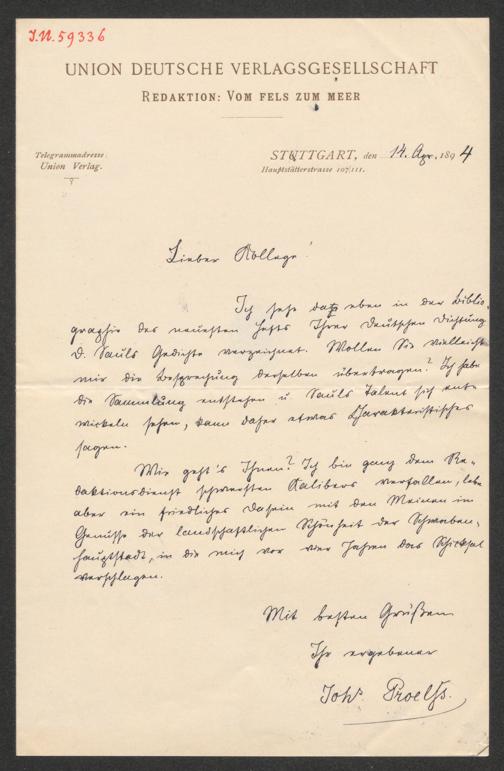 I.N. 59336
UNION DEUTSCHE VERLAGSGESELLSCHAFT
REDAKTION: VOM FELS ZUM MEER
Telegrammadresse:
Union Verlag.
STUTTGART, den 14. Apr. 1894
Hauptstätterstrasse 107/111.
Lieber Kollege!
Ich sehe daß eben in der Biblio-
graphie des neuesten Hefts Ihrer Deutschen Dichtung
D. Sauls Gedichte verzeichnet. Wollen Sie vielleicht
mir die Besprechung derselben übertragen? Ich habe
die Sammlung entstehen u Sauls Talent sich ent-
wickeln sehen, kann daher etwas Charakteristisches
sagen.
Wie geht's Ihnen? Ich bin ganz dem Re-
daktionsdienst schwersten Kalibers verfallen, lebe
aber ein friedliches Dasein mit den Meinen im
Genusse der landschaftlichen Schönheit der Schwaben-
hauptstadt, in die mich vor vier Jahren das Schicksal
verschlagen.
Mit besten Grüßen
Ihr ergebener
Johs. Proelß.